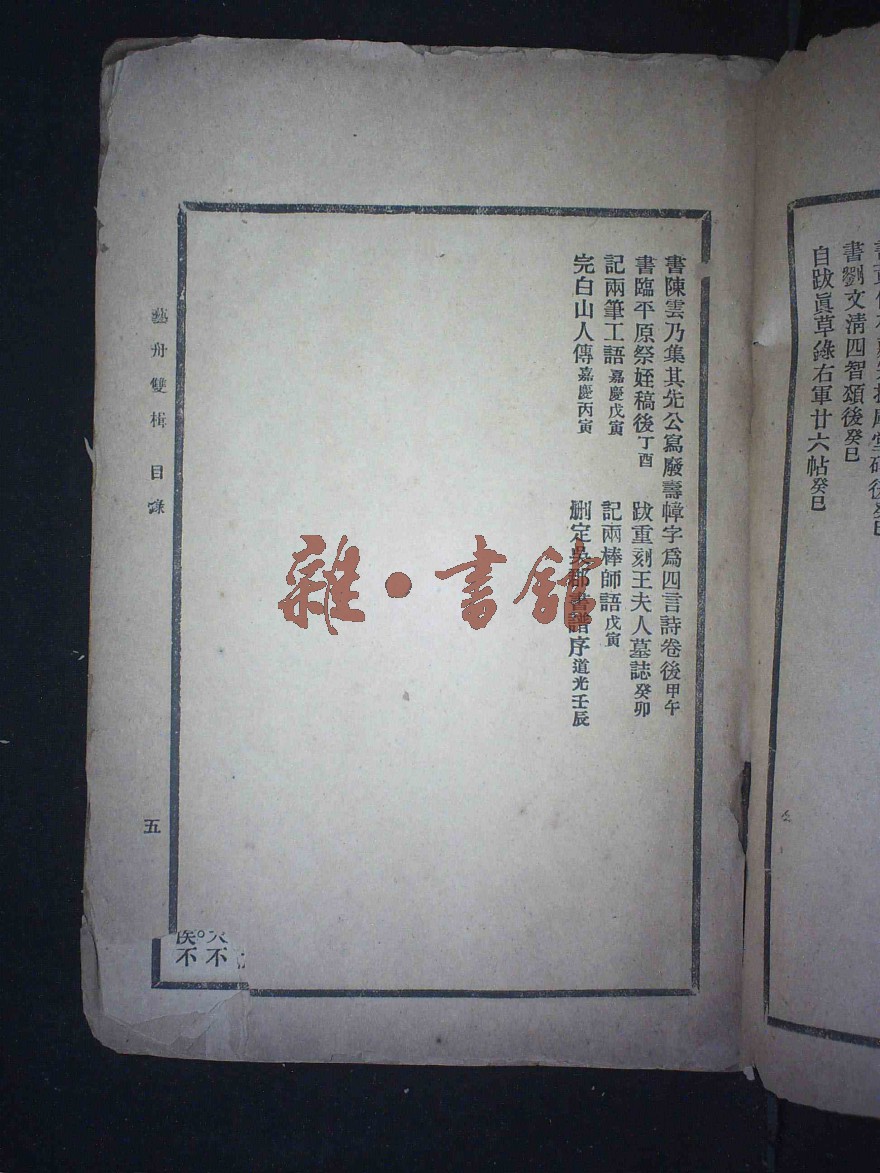 書劉文清四智頌後癸巳
自跋眞草錄右軍廿六帖癸巳
書陳雲乃集其先公寫廢壽幛字爲四言詩卷後甲午
書臨平原祭姪稿後丁酉　跋重刻王夫人墓誌癸卯
記兩筆工語嘉慶戊寅　記兩棒師語戊寅
完白山人傳嘉慶丙寅　删定吳郡書譜序道光壬辰
藝舟雙楫　目錄
五
不不
雜·書館